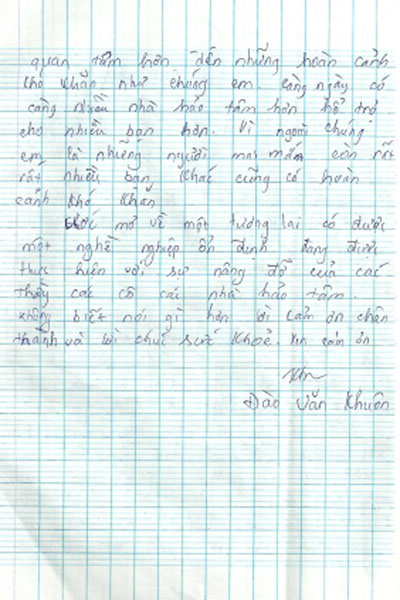 quan tâm hơn đến những hoàn cảnh
khó khăn như chúng em. càng ngày có
càng nhiều nhà hảo tâm hơn hỗ trợ
cho nhiều bạn hơn. Vì ngoài chúng
em là những người may mắm còn rất
rất nhiều bạn khác cũng có hoàn
cảnh khó khăn
Ước mơ về một tương lai có được
một nghề nghiệp ổn định đang được
thực hiện với sự nâng đỡ của các
thầy các cô các nhà hảo tâm.
không biết nói gì hơn lời cảm ơn chân
thành và lời chúc sức khoẻ. xin cảm ơn
Đào Văn Khuôn